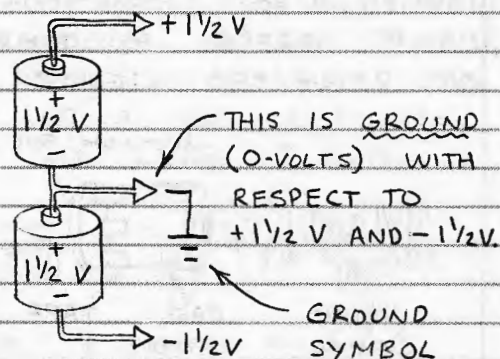 +1 1/2 V
+
1 1/2 V
−
THIS IS GROUND
(0-VOLTS) WITH
RESPECT TO
+1 1/2 V AND -1 1/2 V.
+
1 1/2 V
−
GROUND
SYMBOL
-1 1/2 V